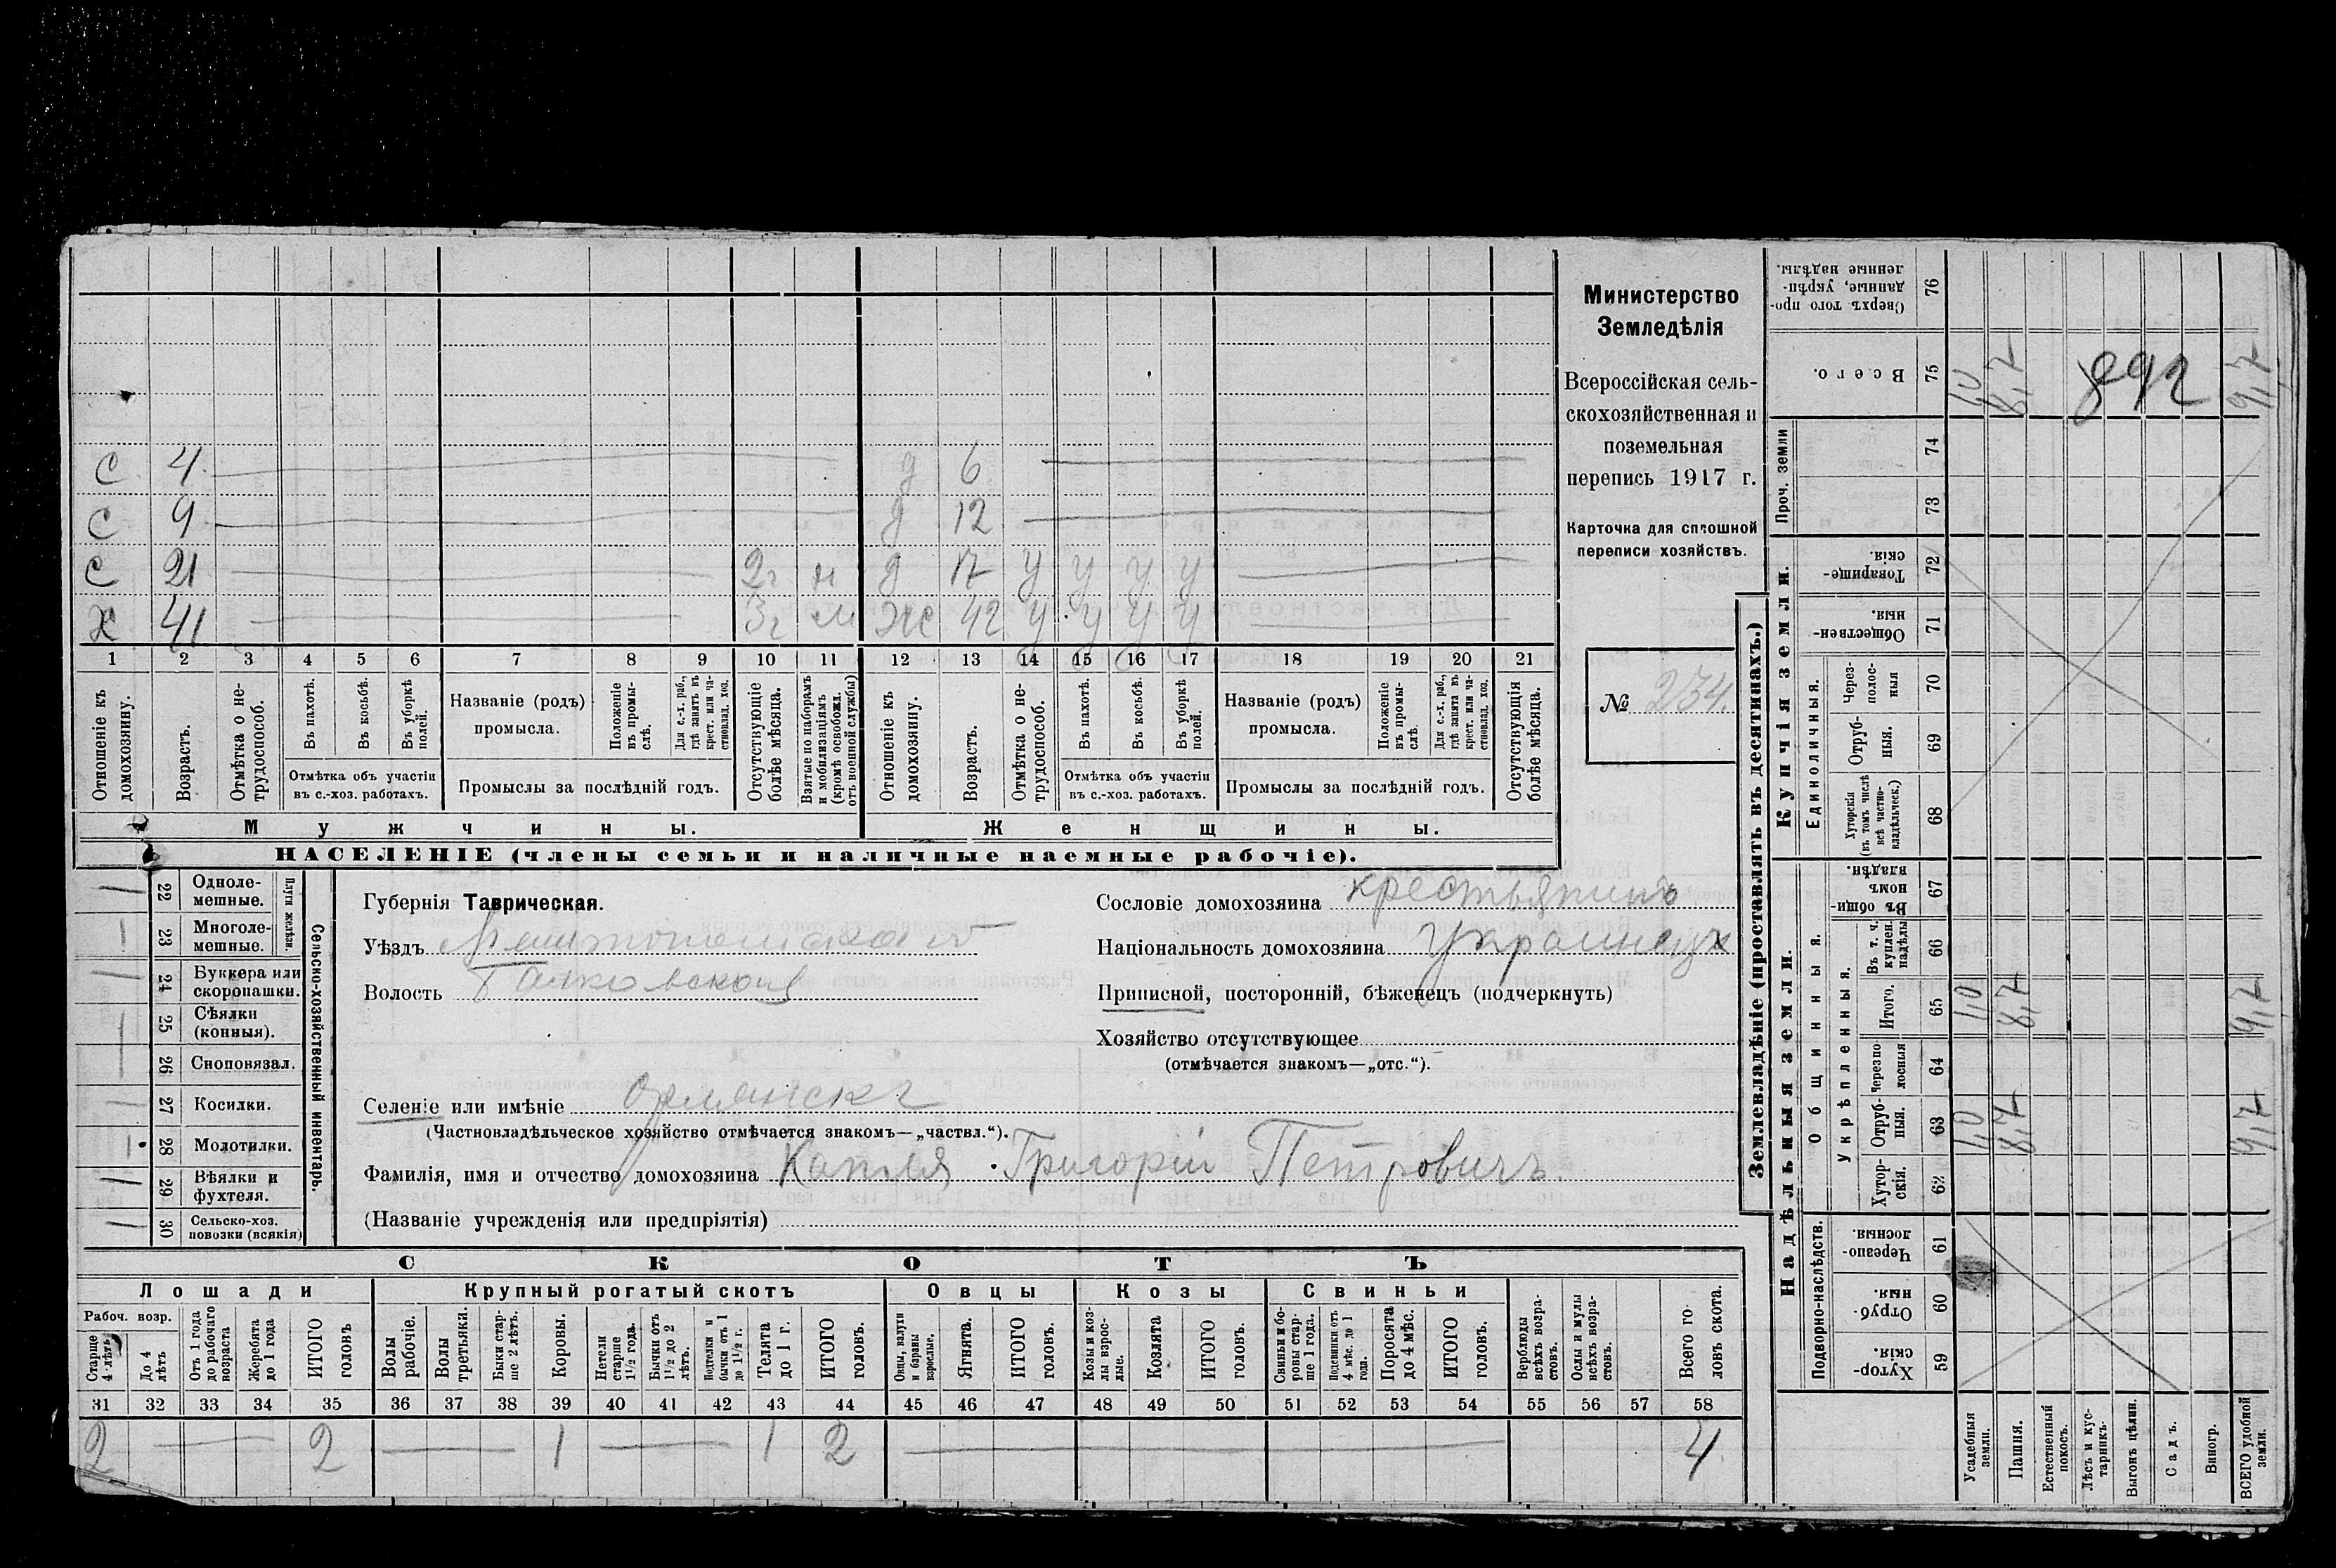 С 4 д 6
С 9 д 12
С 21 2 г н д 17 У У У У
Х 41 3 г м Ж 42 У У У У
1 2 3 4 5 6 7 8 9 10 11 12 13 14 15 16 17 18 19 20 21
Отношеніе къ домохозяину.
Возрастъ.
Отмѣтка о нетрудоспособ.
Въ пахотѣ.
Въ косьбѣ.
Въ уборкѣ полей.
Отмѣтка объ участіи
въ с.-хоз. работахъ.
Названіе (родъ)
промысла.
Положеніе въ промыслѣ.
Для с.-х. раб., гдѣ занятъ въ крест. или частновлад. хоз.
Промыслы за послѣдній годъ.
Отсутствующіе болѣе мѣсяца.
Взятые по наборамъ и мобилизаціямъ (кромѣ освобожд. отъ военной службы)
Отношеніе къ домохозяину.
Возрастъ.
Отмѣтка о нетрудоспособ.
Въ пахотѣ.
Въ косьбѣ.
Въ уборкѣ полей.
Отмѣтка объ участіи
въ с.-хоз. работахъ.
Названіе (родъ)
промысла.
Положеніе въ промыслѣ.
Для с.-х. раб., гдѣ занята въ крест. или частновлад. хоз.
Промыслы за послѣдній годъ.
Отсутствующія болѣе мѣсяца.
Мужчины.
Женщины.
НАСЕЛЕНІЕ (члены семьи и наличные наемные рабочіе).
Министерство
Земледѣлія
Всероссійская сель-
скохозяйственная и
поземельная
перепись 1917 г.
Карточка для сплошной
переписи хозяйствъ.
№ 234.
22 Одноле-
мешные.
23 Многоле-
мешные.
Плуги желѣзн.
24 Буккера или
скоропашки.
25 Сѣялки
(конныя).
26 Сноповязал.
27 Косилки.
28 Молотилки.
29 Вѣялки и
фухтеля.
30 Сельско-хоз.
повозки (всякія)
Сельско-хозяйственный инвентарь.
Губернія Таврическая.
Уѣздъ
Волость
Сословіе домохозяина крестьянинъ
Національность домохозяина Украинецъ
Приписной, посторонній, бѣженецъ (подчеркнуть)
Хозяйство отсутствующее
(отмѣчается знакомъ—„отс.“).
Селеніе или имѣніе
(Частновладѣльческое хозяйство отмѣчается знакомъ—„частвл.“).
Фамилія, имя и отчество домохозяина Капля Григорій Петровичъ.
(Названіе учрежденія или предпріятія)
СКОТЪ
Лошади
Крупный рогатый скотъ
Овцы
Козы
Свиньи
Рабоч. возр.
Старше 4 лѣтъ
До 4 лѣтъ
Отъ 1 года до рабочаго возраста
Жеребята до 1 года
ИТОГО головъ
Волы рабочіе.
Волы третьяки.
Быки старше 2 лѣтъ.
Коровы.
Нетели старше 1½ года.
Бычки отъ 1½ до 2 лѣтъ.
Подтелки и бычки отъ 1 до 1½ г.
Телята до 1 г.
ИТОГО головъ.
Овцы, валухи и бараны взрослые.
Ягнята.
ИТОГО головъ.
Козы и козлы взрослые.
Козлята
ИТОГО головъ.
Свиньи и боровы старше 1 года.
Подсвинки отъ 4 мѣс. до 1 года.
Поросята до 4 мѣс.
ИТОГО головъ.
Верблюды всѣхъ возрастовъ.
Ослы и мулы всѣхъ возрастовъ.
Всего головъ скота.
31 32 33 34 35 36 37 38 39 40 41 42 43 44 45 46 47 48 49 50 51 52 53 54 55 56 57 58
2 2 1 1 2 4
Землевладѣніе (проставлять въ десятинахъ.)
Надѣльныя земли.
Купчія земли.
Проч. земли
Подворно-наслѣдств.
Общинныя.
Укрѣпленныя.
Единоличныя.
Сверхъ того проданные, укрѣпленные надѣлы. 76
Всего. 75 1,0 8,2 892 9,2
74
73
Товарищескія. 72
Общественныя. 71
Черезполосныя 70
Отрубныя. 69
Хуторскія (въ томъ числѣ всѣ частновладѣльческ.) 68
Въ общинномъ владѣн. 67
Въ т. ч. куплен. надѣлы 66
Итого. 65 1,0 8,2 9,2
Черезполосныя 64
Отрубныя. 63 1,0 8,2 9,2
Хуторскія. 62
Черезполосныя. 61
Отрубныя. 60
Хуторскія. 59
Усадебныя земли.
Пашня.
Естественный покосъ.
Лѣсъ и кустарникъ.
Выгонъ цѣлин.
Садъ.
Виногр.
ВСЕГО удобной земли.